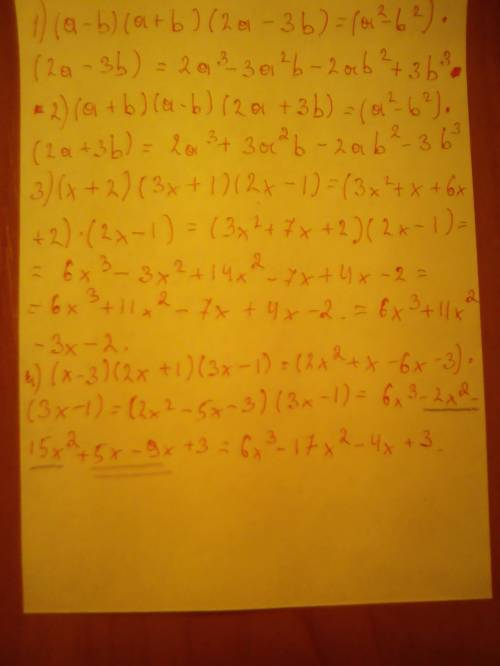 1) (a-b)(a+b)(2a-3b)=(a²-b²)·
(2a-3b)=2a³-3a²b-2ab²+3b³.
2) (a+b)(a-b)(2a+3b)=(a²-b²)·
(2a+3b)=2a³+3a²b-2ab²-3b³
3) (x+2)(3x+1)(2x-1)=(3x²+x+6x
+2)·(2x-1)=(3x²+7x+2)(2x-1)=
=6x³-3x²+14x²-7x+4x-2=
=6x³+11x²-7x+4x-2.=6x³+11x²
-3x-2.
4) (x-3)(2x+1)(3x-1)=(2x²+x-6x-3)·
(3x-1)=(2x²-5x-3)(3x-1)=6x³-2x²-
15x²+5x-9x+3=6x³-17x²-4x+3.